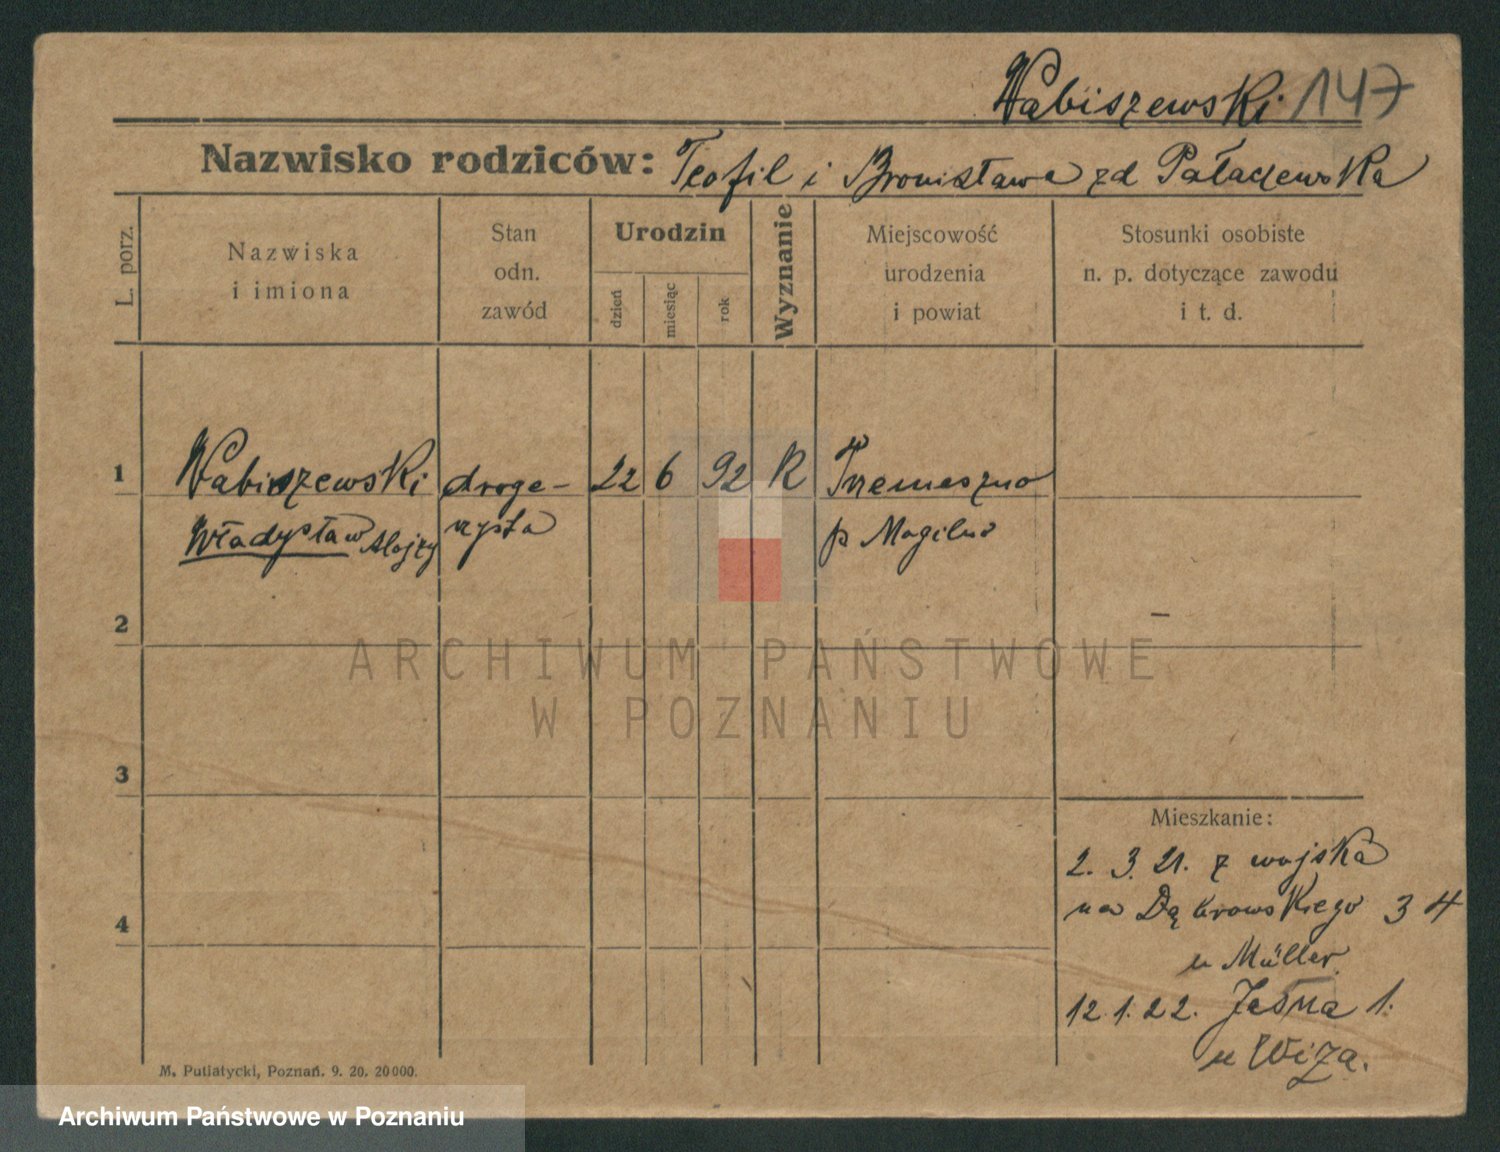 Wabiszewski 147
Nazwisko rodziców: Teofil i Bronisława zd
L. porz.
Nazwiska
i imiona
Stan
odn.
zawód
Urodzin
dzień
miesiąc
rok
Wyznanie
Miejscowość
urodzenia
i powiat
Stosunki osobiste
n. p. dotyczące zawodu
i t. d.
1 Wabiszewski droge- 22 6 92 R Tremeszno
Władysław Alojzy rzysta p Mogilno
2
3
4
Mieszkanie:
2. 3. 21. z wojska
na Dąbrowskiego 34
u Müller
12. 1. 22. Jasna 1.
u Wiza.
M. Putiatycki, Poznań. 9. 20. 20000.
ARCHIWUM PAŃSTWOWE
W POZNANIU
Archiwum Państwowe w Poznaniu